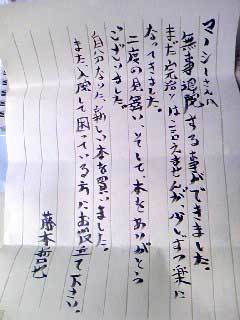 マーシーさんへ
無事退院する事ができました。
まだ完治とは言えませんが少しずつ楽に
なってきました。
二度の見舞い、そして、本をありがとう
ございました。
自分なりに新しい本を買いました。
また入院して困っている方にお役立て下さい。
藤木哲也